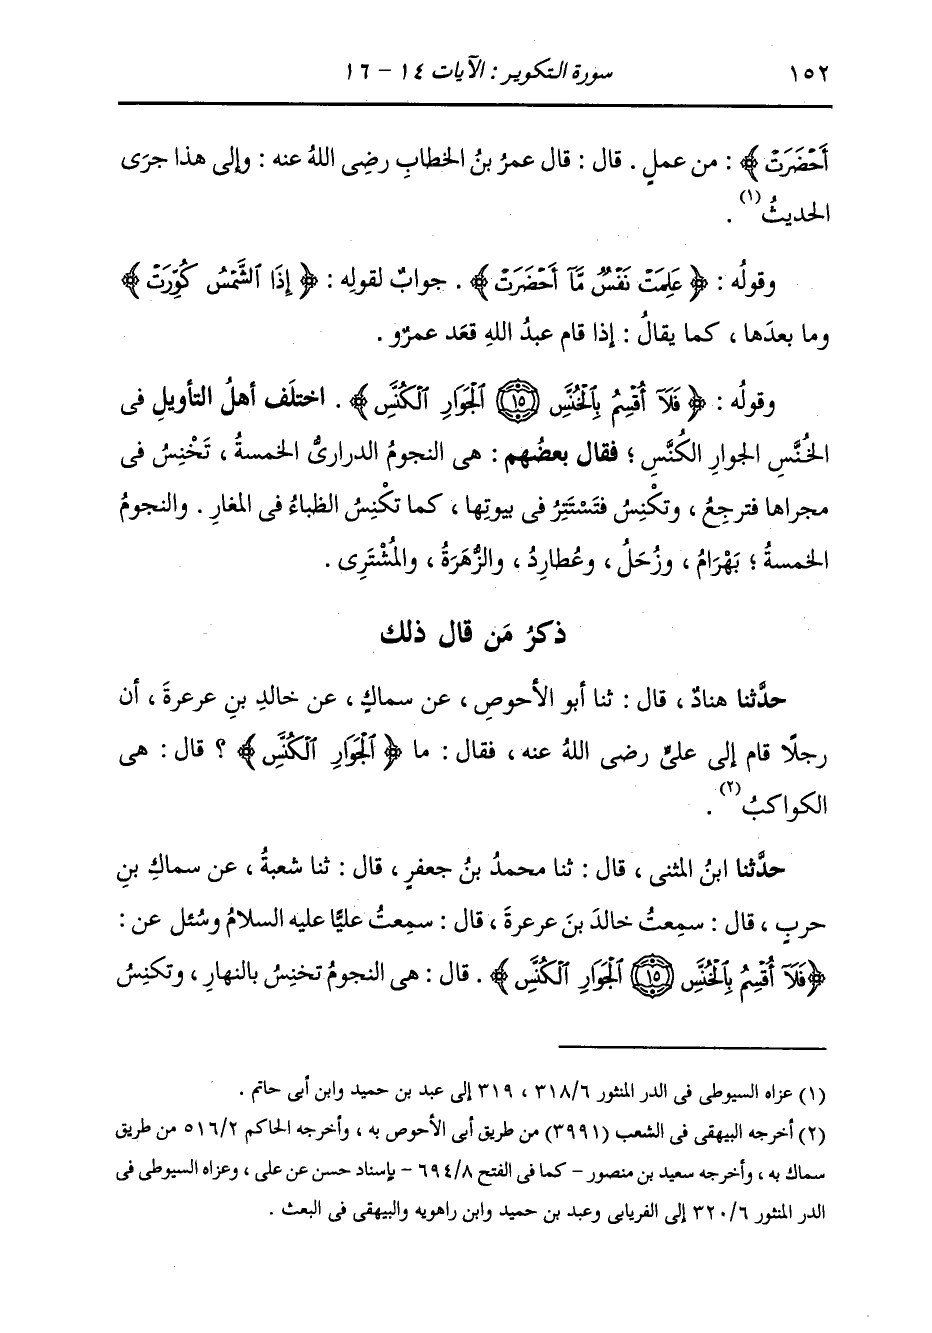 ١٥٢ سورة التكوير : الآيات ١٤ - ١٦
أَحْضَرَتْ ﴾ : من عملٍ . قال : قال عمرُ بنُ الخطابِ رضِى اللهُ عنه : وإلى هذا جرَى
الحديثُ (١) .
وقولُه : ﴿ عَلِمَتْ نَفْسٌ مَّآ أَحْضَرَتْ ﴾ . جوابٌ لقولِه : ﴿ إِذَا ٱلشَّمْسُ كُوِّرَتْ ﴾
وما بعدَها ، كما يقالُ : إذا قام عبدُ اللهِ قعَد عمرٌو .
وقولُه : ﴿ فَلَآ أُقْسِمُ بِٱلْخُنَّسِ ١٥ ٱلْجَوَارِ ٱلْكُنَّسِ ﴾ . اختلَف أهلُ التأويلِ فى
الخُنَّسِ الجوارِ الكُنَّسِ ؛ فقال بعضُهم : هى النجومُ الدرارىُّ الخمسةُ ، تَخْنِسُ فى
مجراها فترجِعُ ، وتكْنِسُ فتَسْتَتِرُ فى بيوتِها ، كما تكْنِسُ الظباءُ فى المغارِ . والنجومُ
الخمسةُ ؛ بَهْرَامُ ، وزُحَلُ ، وعُطارِدُ ، والزُّهَرَةُ ، والمُشْتَرِى .
ذكرُ مَن قال ذلك
حدَّثنا هنادٌ ، قال : ثنا أبو الأحوصِ ، عن سماكٍ ، عن خالدِ بنِ عرعرةَ ، أن
رجلًا قام إلى علىٍّ رضى اللهُ عنه ، فقال : ما ﴿ ٱلْجَوَارِ ٱلْكُنَّسِ ﴾ ؟ قال : هى
الكواكبُ (٢) .
حدَّثنا ابنُ المثنى ، قال : ثنا محمدُ بنُ جعفرٍ ، قال : ثنا شعبةُ ، عن سماكِ بنِ
حربٍ ، قال : سمِعتُ خالدَ بنَ عرعرةَ ، قال : سمِعتُ عليًّا عليه السلامُ وسُئل عن :
﴿ فَلَآ أُقْسِمُ بِٱلْخُنَّسِ ١٥ ٱلْجَوَارِ ٱلْكُنَّسِ ﴾ . قال : هى النجومُ تخنِسُ بالنهارِ ، وتكنِسُ
(١) عزاه السيوطى فى الدر المنثور ٣١٨/٦ ، ٣١٩ إلى عبد بن حميد وابن أبى حاتم .
(٢) أخرجه البيهقى فى الشعب (٣٩٩١) من طريق أبى الأحوص به ، وأخرجه الحاكم ٥١٦/٢ من طريق
سماك به ، وأخرجه سعيد بن منصور - كما فى الفتح ٦٩٤/٨ - بإسناد حسن عن على ، وعزاه السيوطى فى
الدر المنثور ٣٢٠/٦ إلى الفريابى وعبد بن حميد وابن راهويه والبيهقى فى البعث .